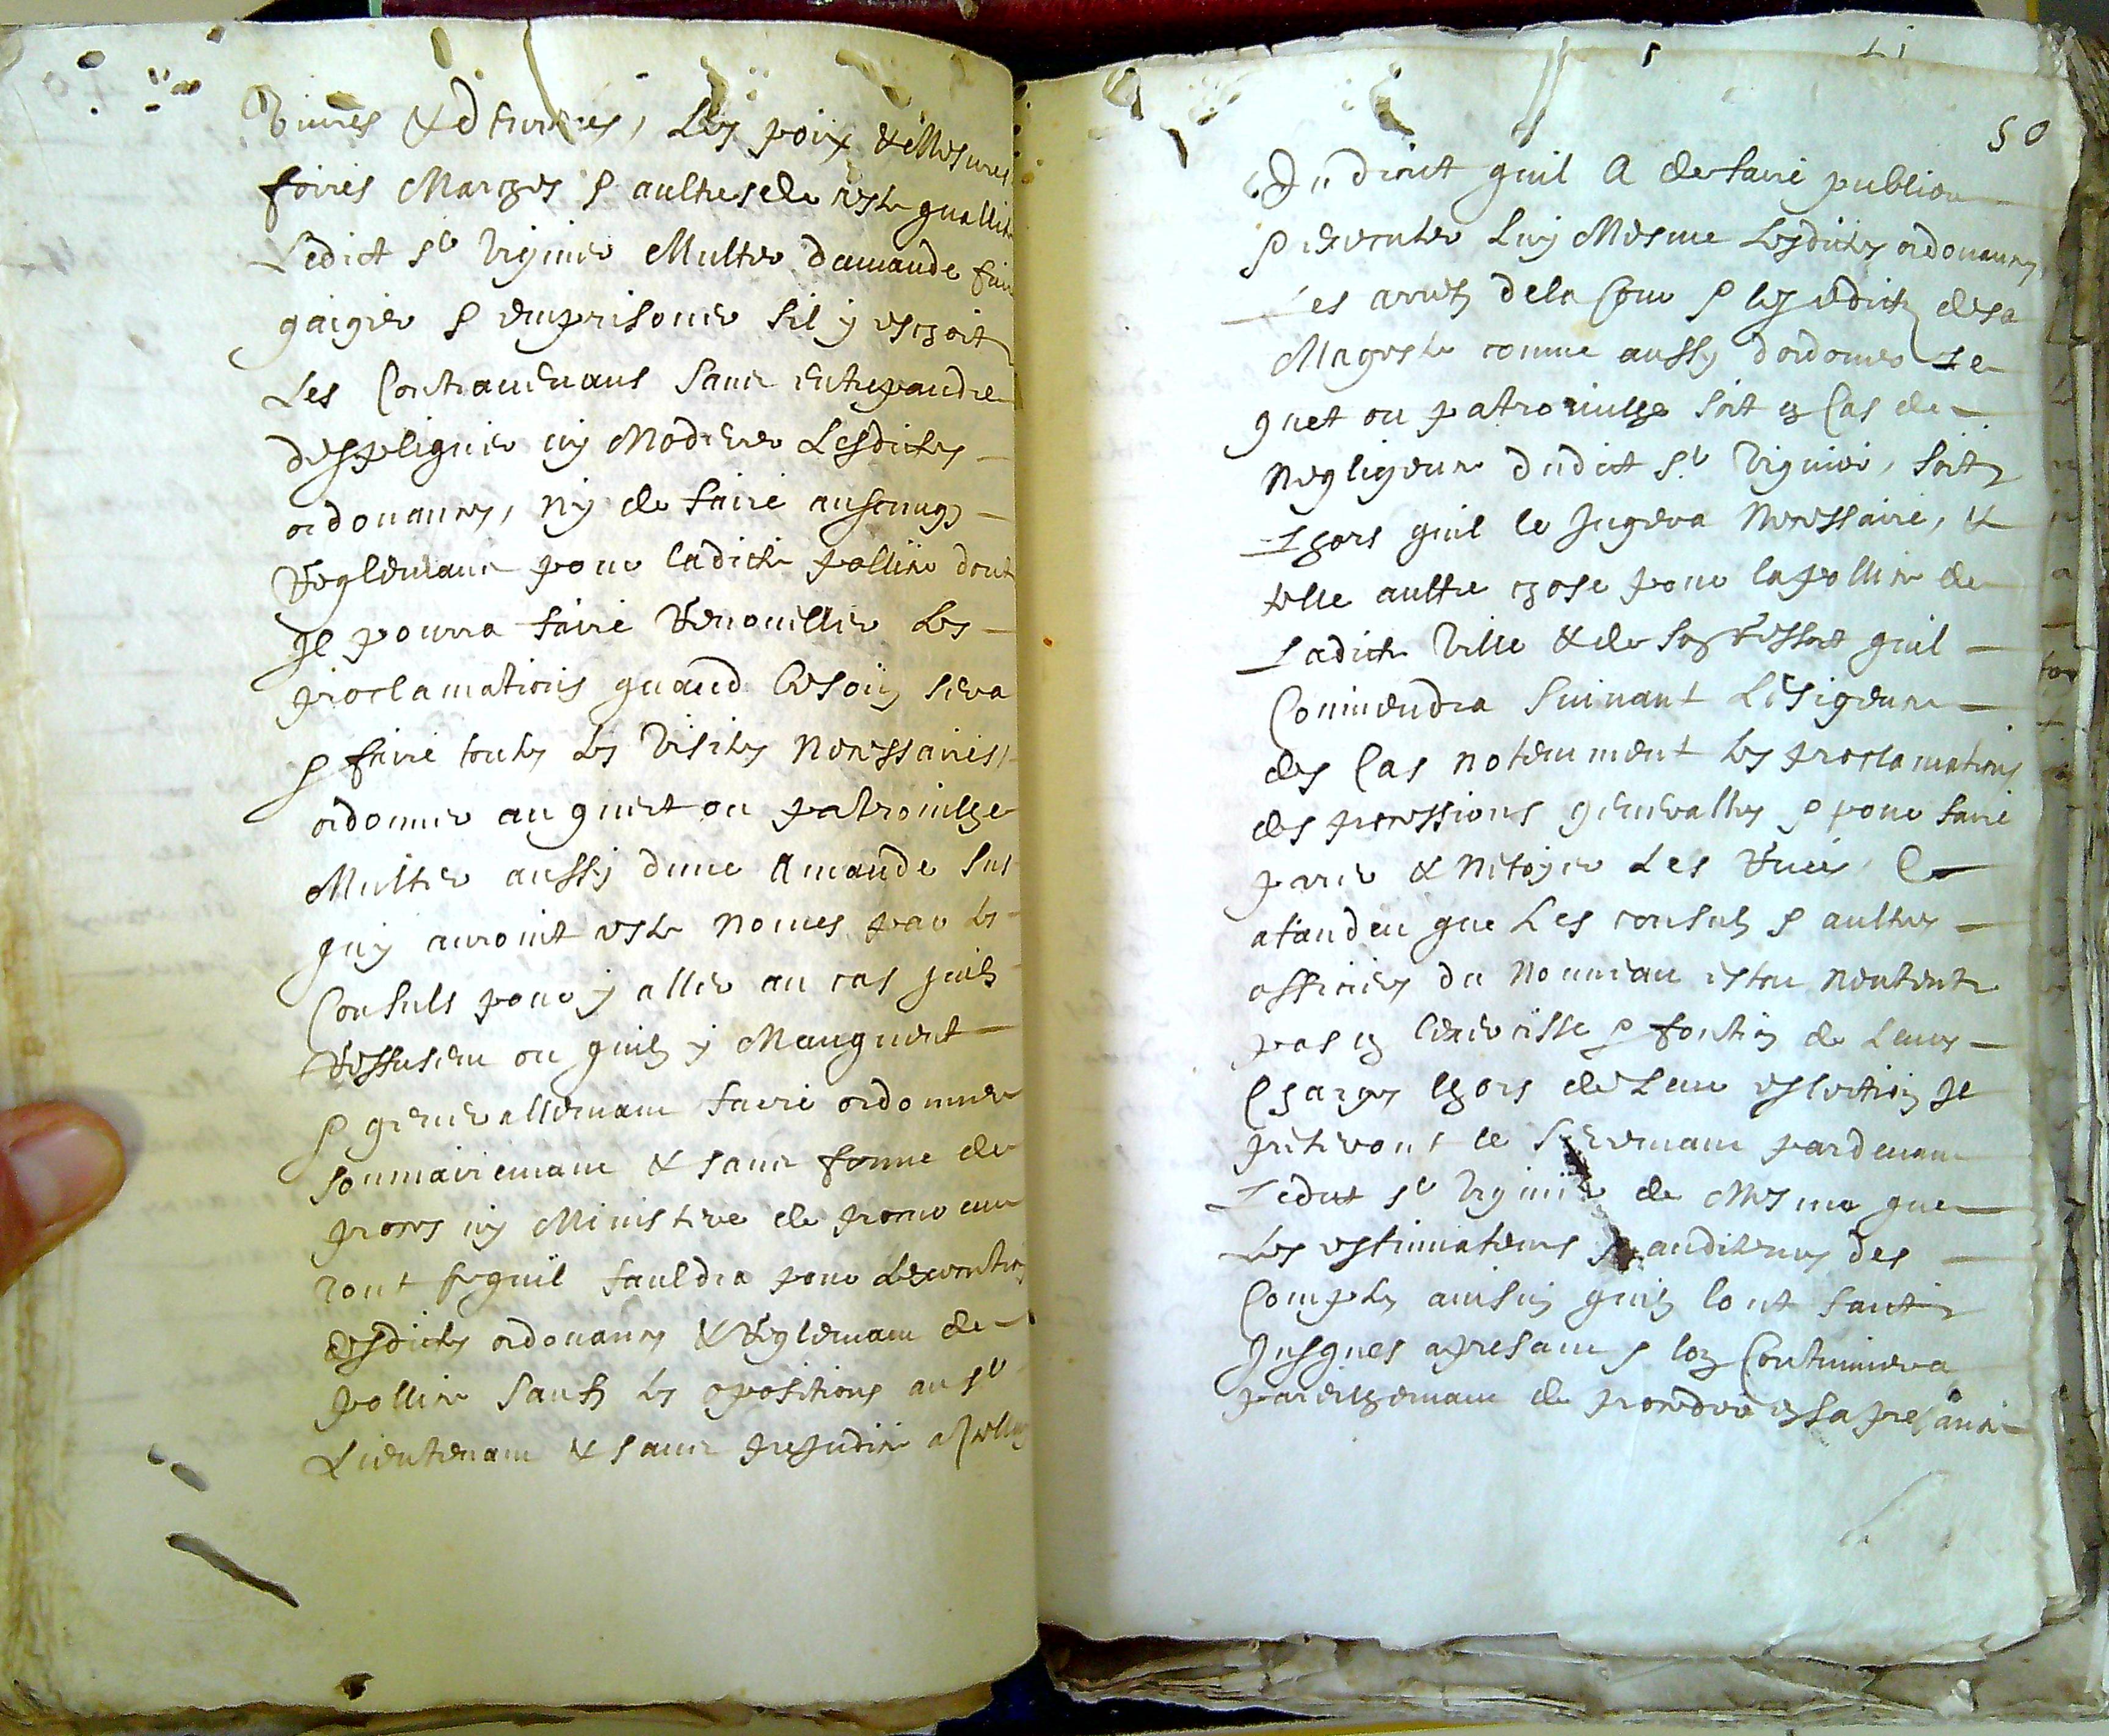 Vivres & danrées, Les poix & Mesures
foires Marches & aultres de ceste quallité
Ledict sr Viguier Multer damande faire
gaiger & emprisoner sil y eschoit
Les Contrauenans sans entrepandre
despliquer ny Moderer Lesdictes
ordonances, ny de faire auscungs
Reglemans pour ladicte pollice dont
Il pourra faire Renouveller Les
proclamations quand besoing sera
& faire toutes Les Visites Necessaires,
ordonner au guet ou patrouilhe
Multer aussy dune Amande sus
quy auroint este Nomes par les
Consuls pour y aller au cas quils
Reffusent ou quils y Manquent
& generallemant faire ordonner
sommairemant & sans forme de
proces ny Ministere de procureur
tout ce quil fauldra pour Lexecution
desdictes ordonances & Reglemans de
pollice sauf les opositions au sr
Lieutenant & sans prejudice
50
Du droict quil A de faire publier
& executer Luy Mesme Lesdictes ordonances
Les arrets de la Cour & les edicts de sa
Mageste comme aussy dordonner Le
guet ou patrouilhe soit en Cas de
Negligence dudict sr Viguier, soit
Lhors quil le Jugera Necessaire, &
telle aultre chose pour la pollice de
Ladicte Ville & de son Ressort quil
Conviendra suivant Lesigence
des Cas notemment les proclamations
des processions generalles & pour faire
parer & Nitoyer Les Rues Et
atandeu que Les consuls & aultres
officiers du Nouveau estat nentrent
pas en lexercisse & fontion de Leurs
Charges lhors de Leur eslection Il
preteront le seremant pardevant
Ledict sr Viguier de Mesme que
Les estimateurs & auditeurs des
Comptes ainsin quils lont faict
Jusques apresant & lon Continuera
pareilhemant de proceder en sa presance